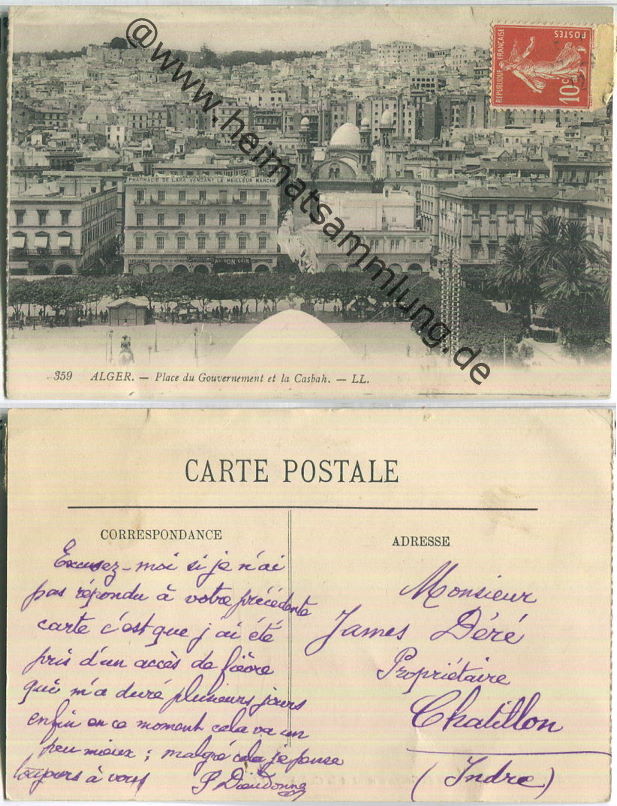 @www.heimatsammlung.de
RÉPUBLIQUE FRANÇAISE
POSTES
10c
VENDANT LE MEILLEUR MARCHÉ
359 ALGER. — Place du Gouvernement et la Casbah. — LL.
CARTE POSTALE
CORRESPONDANCE
Excusez-moi si je n'ai
pas répondu à votre précédente
carte c'est que j'ai été
pris d'un accès de fièvre
qui m'a duré plusieurs jours
enfin en ce moment cela va un
peu mieux ; malgré cela je pense
toujours à vous
P Dieudonné
ADRESSE
Monsieur
James Déré
Propriétaire
Chatillon
(Indre)